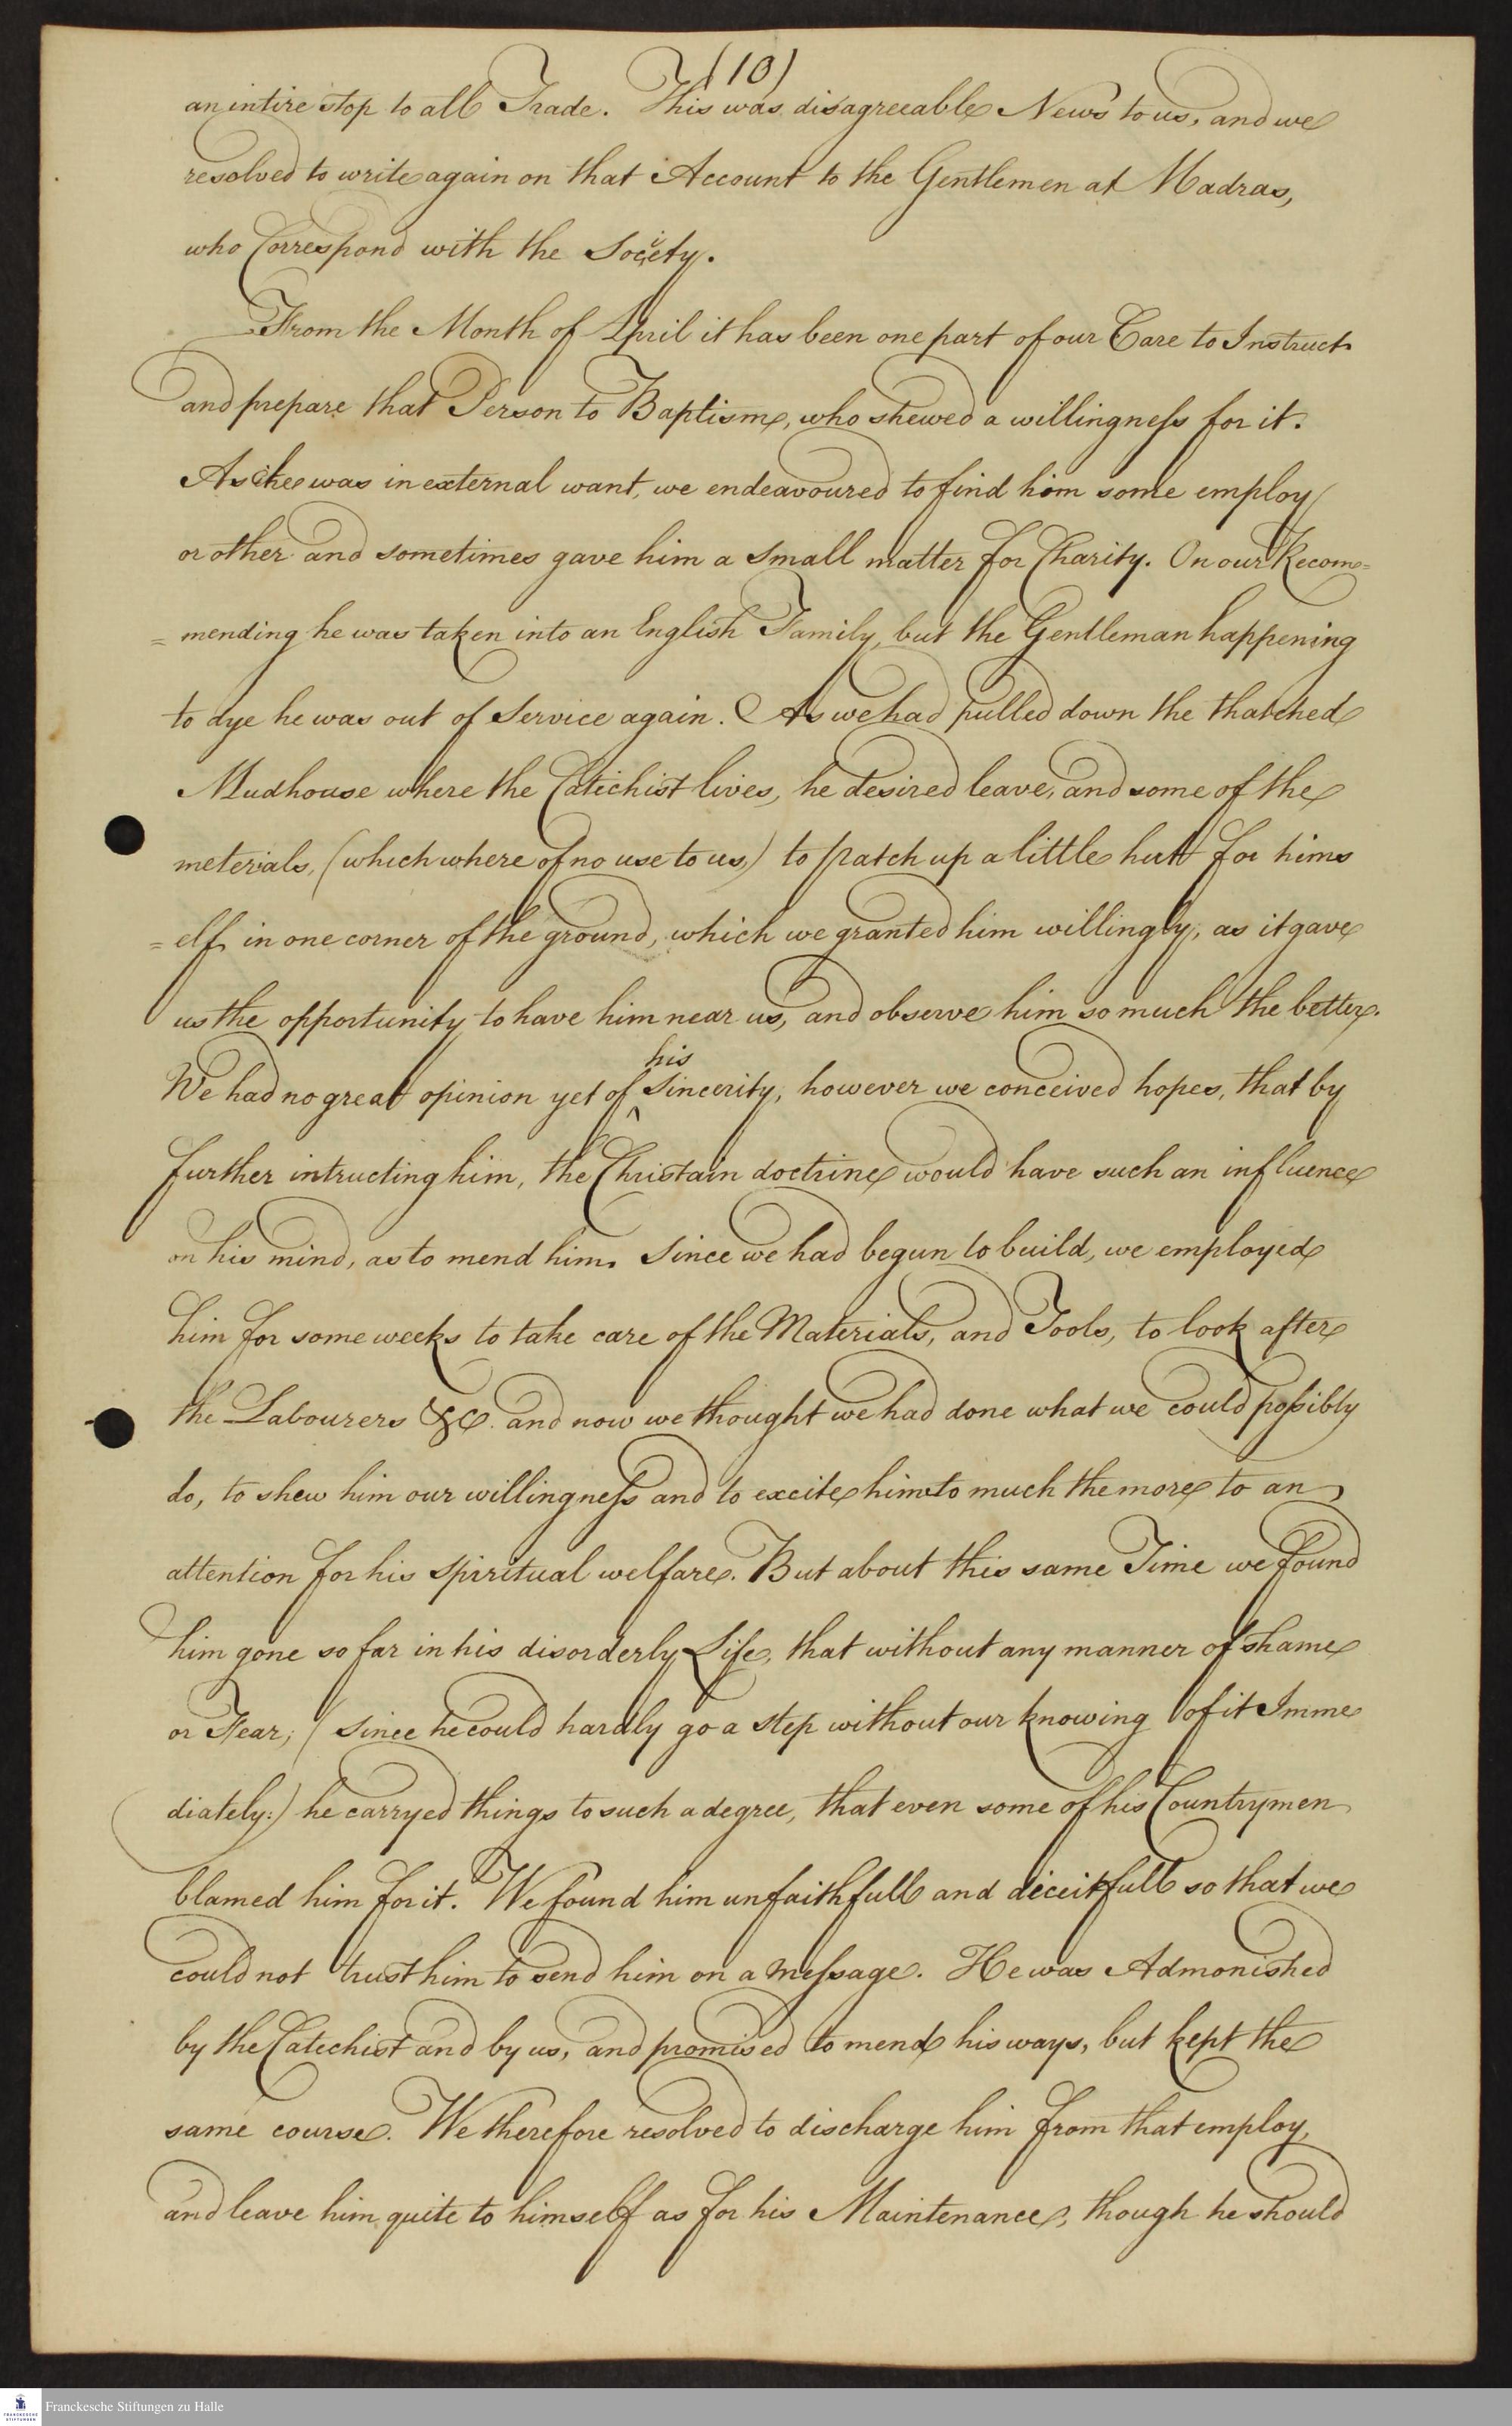 (10)
an intire stop to all Trade. This was disagreeable News to us, and we
resolved to write again on that Account to the Gentlemen at Madras,
who Correspond with the Society.
From the Month of April it has been one part of our Care to Instruct
and prepare that Person to Baptism, who shewed a willingness for it.
As he was in external want, we endeavoured to find him some employ
or other and sometimes gave him a small matter for Charity. On our Recom=
=mending he was taken into an English Family, but the Gentleman happening
to dye he was out of Service again. As we had pulled down the thatched
Mudhouse where the Catechist lives, he desired leave, and some of the
meterials, (which where of no use to us,) to patch up a little hutt for hims
=elf, in one corner of the ground, which we granted him willingly, as it gave
us the opportunity to have him near us, and observe him so much the better.
We had no great opinion yet of his Sincerity, however we conceived hopes, that by
further intructing him, the Christain doctrine would have such an influence
on his mind, as to mend him. Since we had begun to build, we employed
him for some weeks to take care of the Materials, and Tools, to look after
the Labourers &c. and now we thought we had done what we could possibly
do, to shew him our willingness and to excite him to much the more to an
attention for his spiritual welfare. But about this same Time we found
him gone so far in his disorderly Life, that without any manner of shame
or Fear; (since he could hardly go a step without our knowing of it Imme
diately:) he carryed things to such a degree, that even some of his Countrymen
blamed him for it. We found him unfaithfull and deceitfull so that we
could not trust him to send him on a message. He was Admonished
by the Catechist and by us, and promised to mend his ways, but kept the
same course. We therefore resolved to discharge him from that employ,
and leave him quite to himself as for his Maintenance, though he should
Franckesche Stiftungen zu Halle